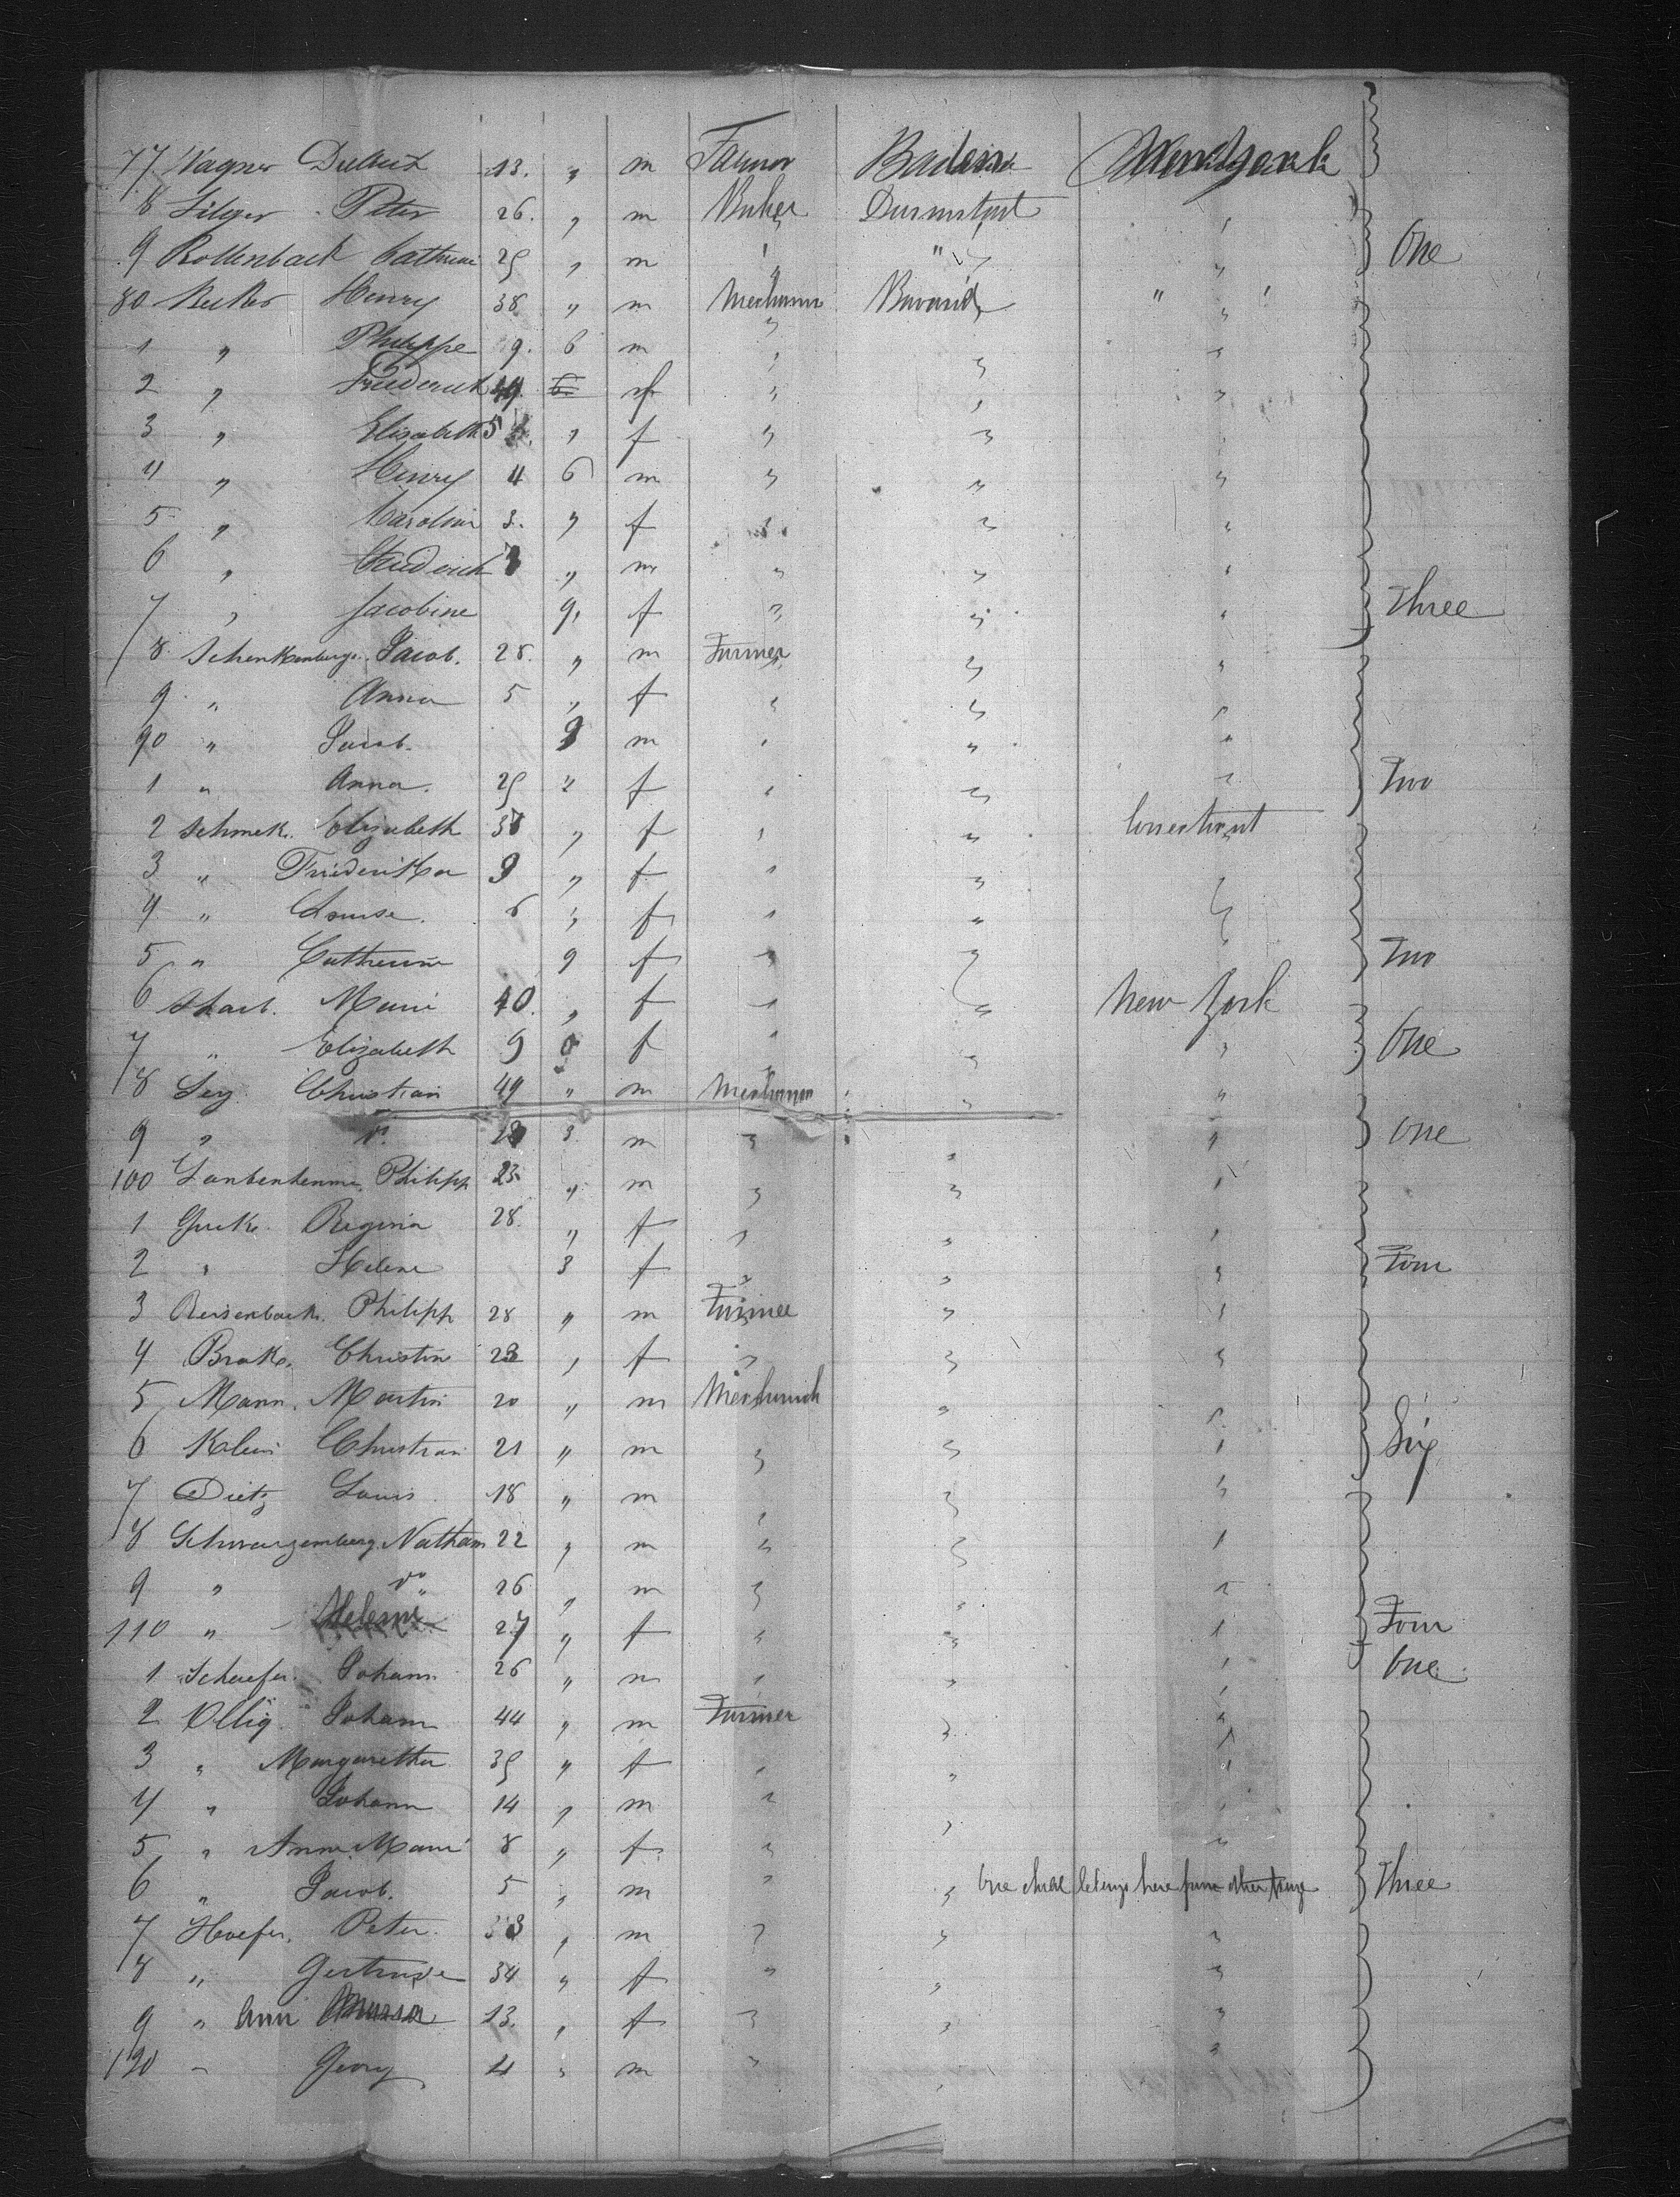 77 Wagner 13. " m Farmer Baden New York
8 Peter 26. " m Darmstadt "
9 Rollenback Cathrine 25 " m " " " One
80 Henry 38 " m " "
1 " Philippe 9. 6 m " " "
2 " Friederich " " "
3 " Elisabeth 5 " f " " "
4 " Henry 4 6 m " " "
5 " Carolina 3. " f " " "
6 " Friederich " m " " "
7 " Jacobine 9. f " " " Three
8 Jacob. 28. " m Farmer " "
9 " Anna 5 " f " " "
90 " Jacob. 9 m " " "
1 " Anna. 25 " f " " " Two
2 Schmek. Elizabeth 38 " f " " Connecticut
3 " Friederika 9 " f " "
4 " Louise. 6 " f " "
5 " Catherine 9 f " " " Two
6 Marie 40. " f " " New York
7 " Elizabeth 9 f " " " One
8 Ley Christian 49 " m "
9 " do 3 m " " " One
100 Philipp 23 " m " " "
1 Regina 28. " f " " "
2 " Helene 3 f " " " Four
3 Reisenback. Philipp 28 " m Farmer " "
4 Brak. Christin 23 " f " " "
5 Mann. Martin 20 " m Mechanich " "
6 Klein Christian 21 " m " " " Six
7 Dietz Louis 18 " m " " "
8 Schwarzemberg. Nathan 22 " m " " "
9 " do 26 " m " " "
110 " Helene 27 " f " " " Four
1 Schaefer. Johann 26 " m " " " One
2 Ollig. Johann 44 " m Farmer " "
3 " Margaretha 35 " f " " "
4 " Johann 14 " m " " "
5 " Anna Marie 8 " f " " "
6 " Jacob. 5 " m " " One child belongs here from other page Three
7 Hoefer. Peter. 33 " m " " "
8 " Gertrude 34 " f " " "
9 " Ann 13. " f " " "
120 " Georg 4 " m " "